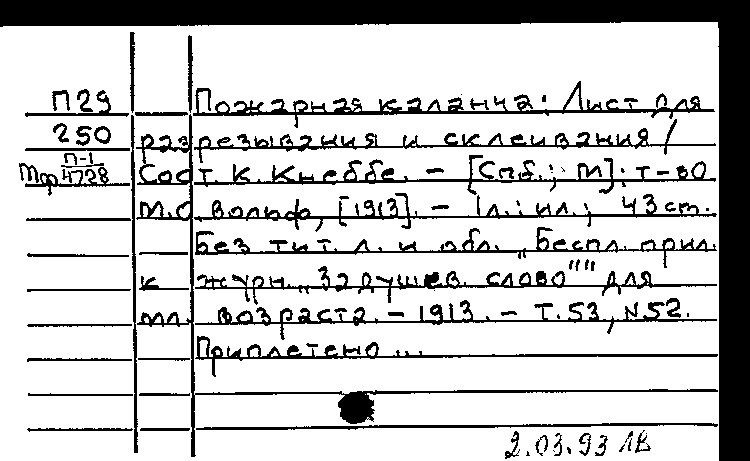 П29 Пожарная каланча: Лист для
250 разрезывания и склеивания /
Мф П-1/4728 Сост. К. Кнеббе. – [Спб.; М]: т-во
М.О. Вольф, [1913]. – 1л.: ил.; 43 cm.
Без тит. л. и обл. „Беспл. прил.
к журн. „Задушев. слово"" для
мл. возраста. – 1913. – Т. 53, N52.
Приплетено ...
2.03.93 ЛВ